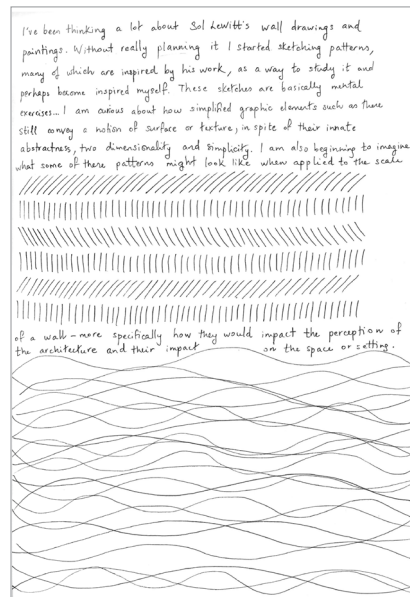 I've been thinking a lot about Sol LeWitt's wall drawings and
paintings. Without really planning it I started sketching patterns,
many of which are inspired by his work, as a way to study it and
perhaps become inspired myself. These sketches are basically mental
exercises... I am curious about how simplified graphic elements such as these
still convey a notion of surface or texture, in spite of their innate
abstractness, two dimensionality and simplicity. I am also beginning to imagine
what some of these patterns might look like when applied to the scale
of a wall - more specifically how they would impact the perception of
the architecture and their impact on the space or setting.